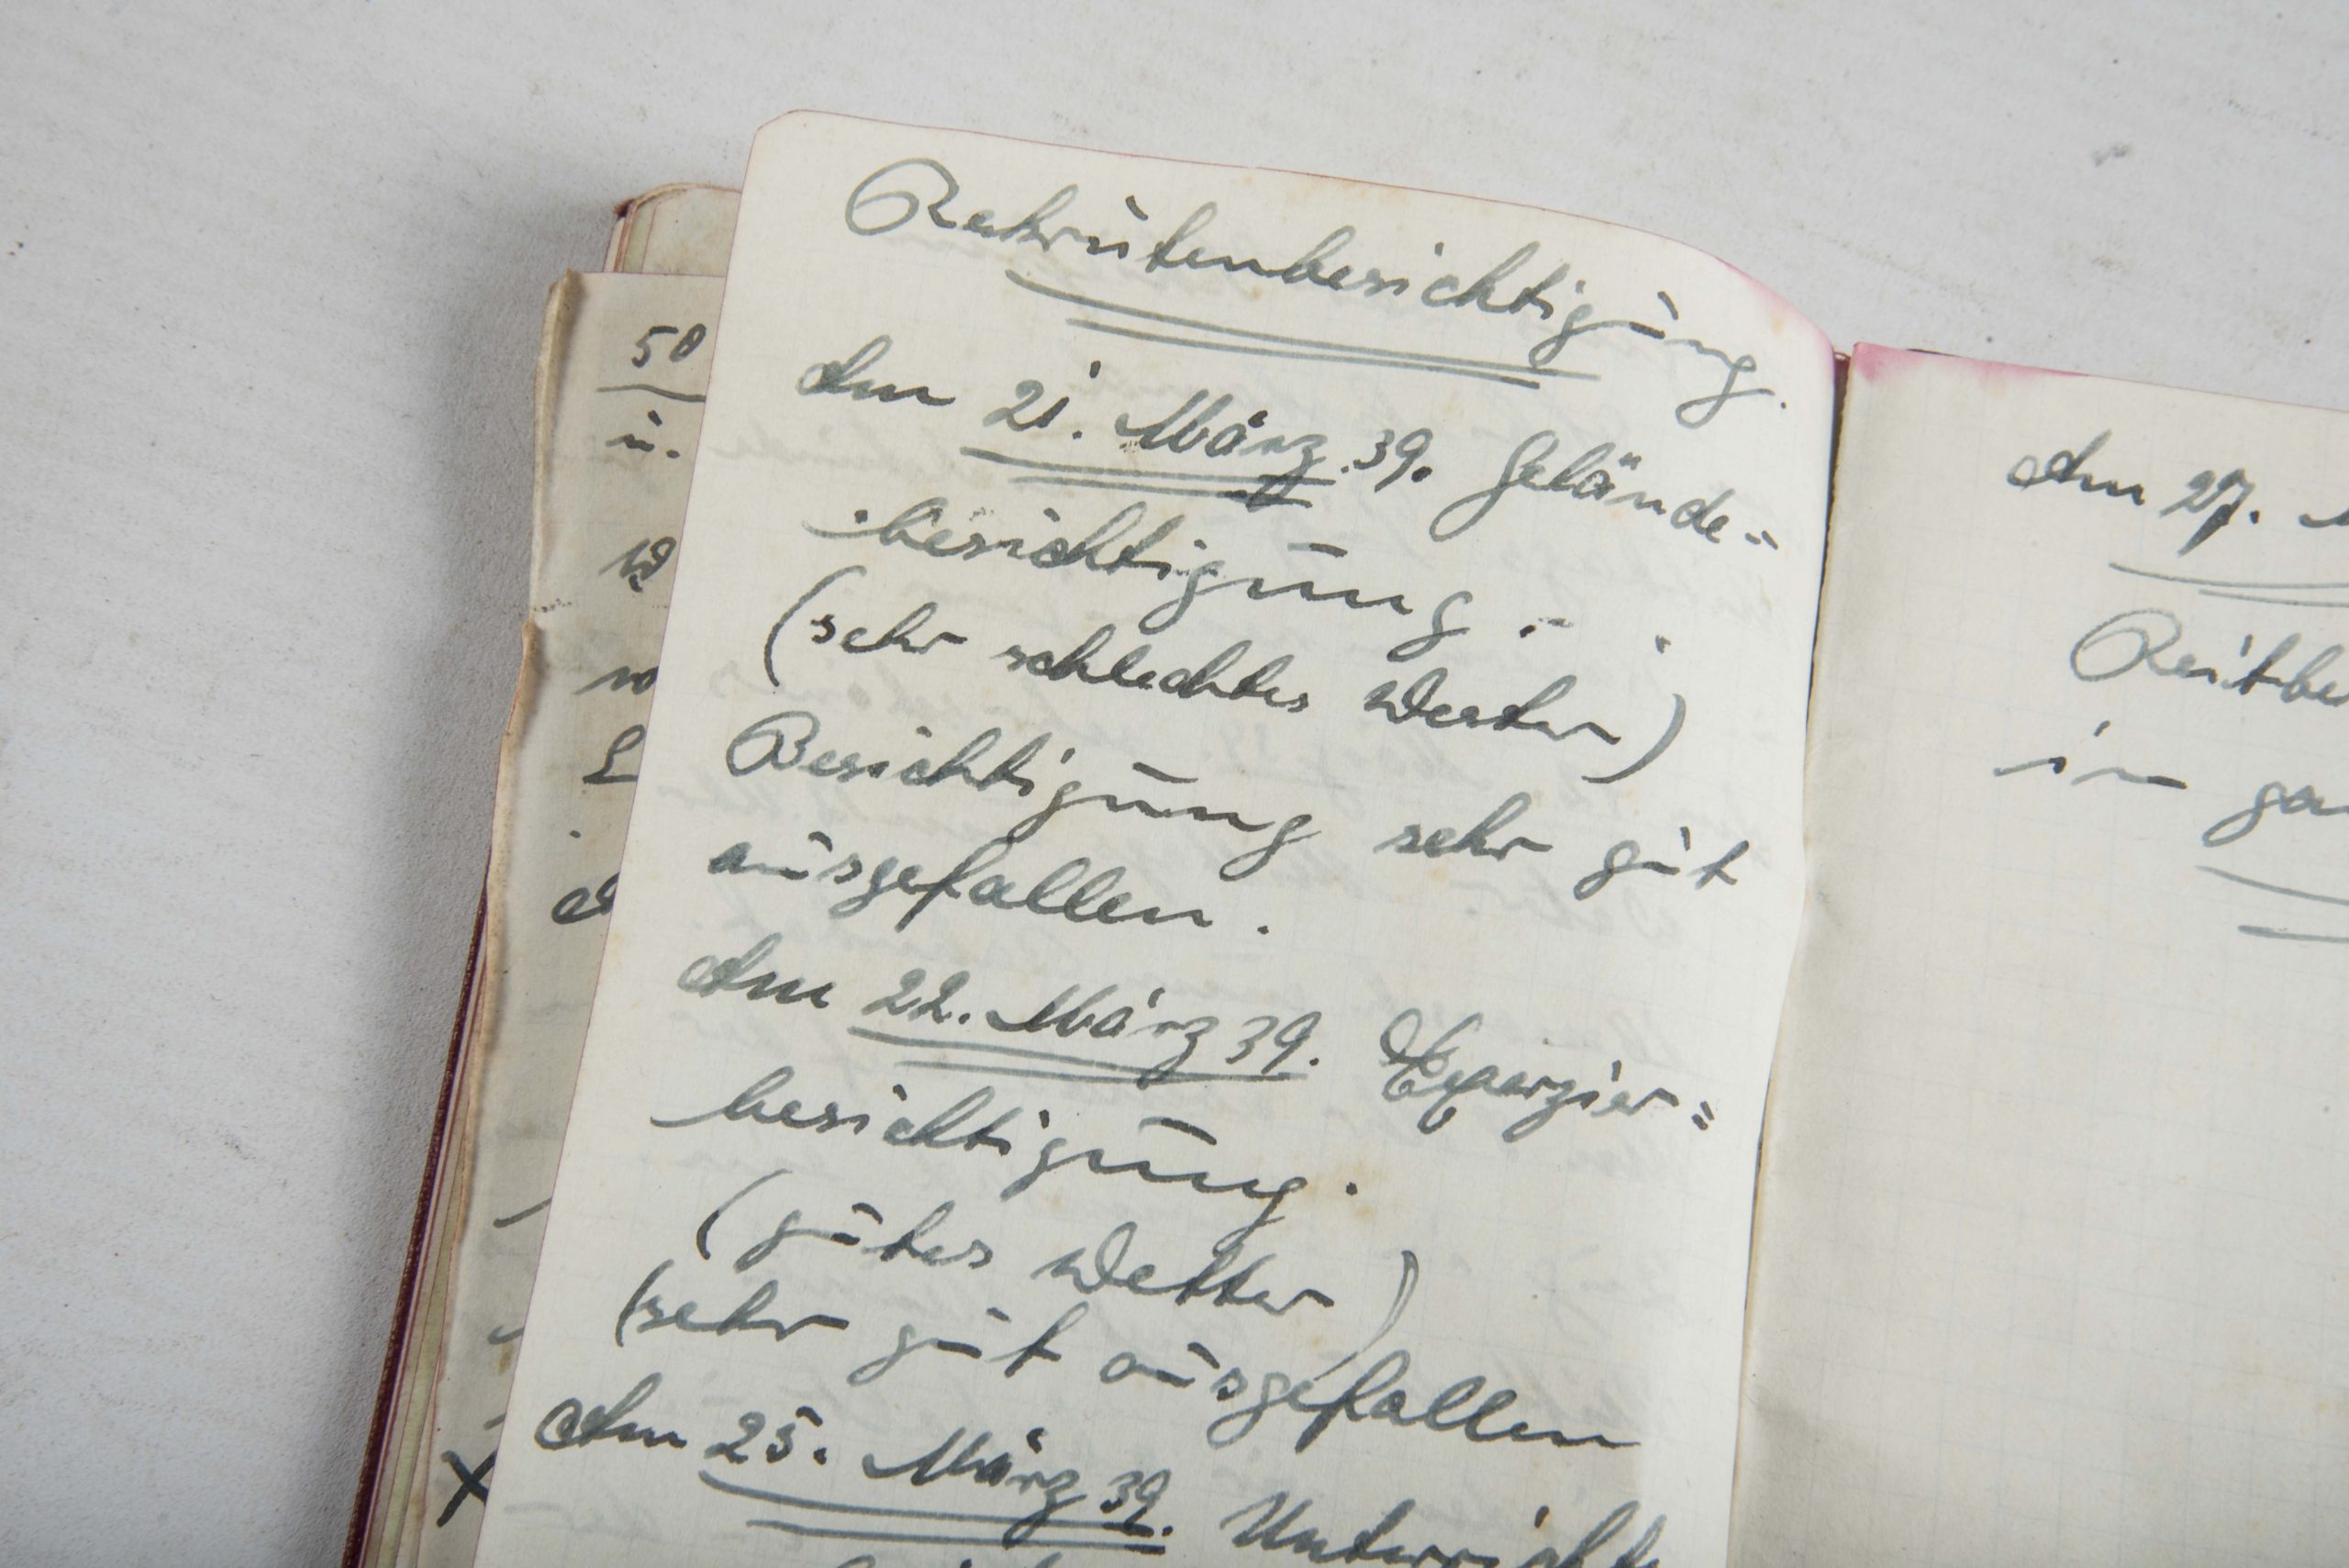 50
u.
Rekrutenbesichtigung.
Am 21. März. 39. Gelände=
besichtigung.
(sehr schlechtes Wetter)
Besichtigung sehr gut
ausgefallen.
Am 22. März 39. Exerzier=
besichtigung.
(gutes Wetter)
(sehr gut ausgefallen
Am 25. März 39. Unterrichts
Am 27.
Reitbe
im ga